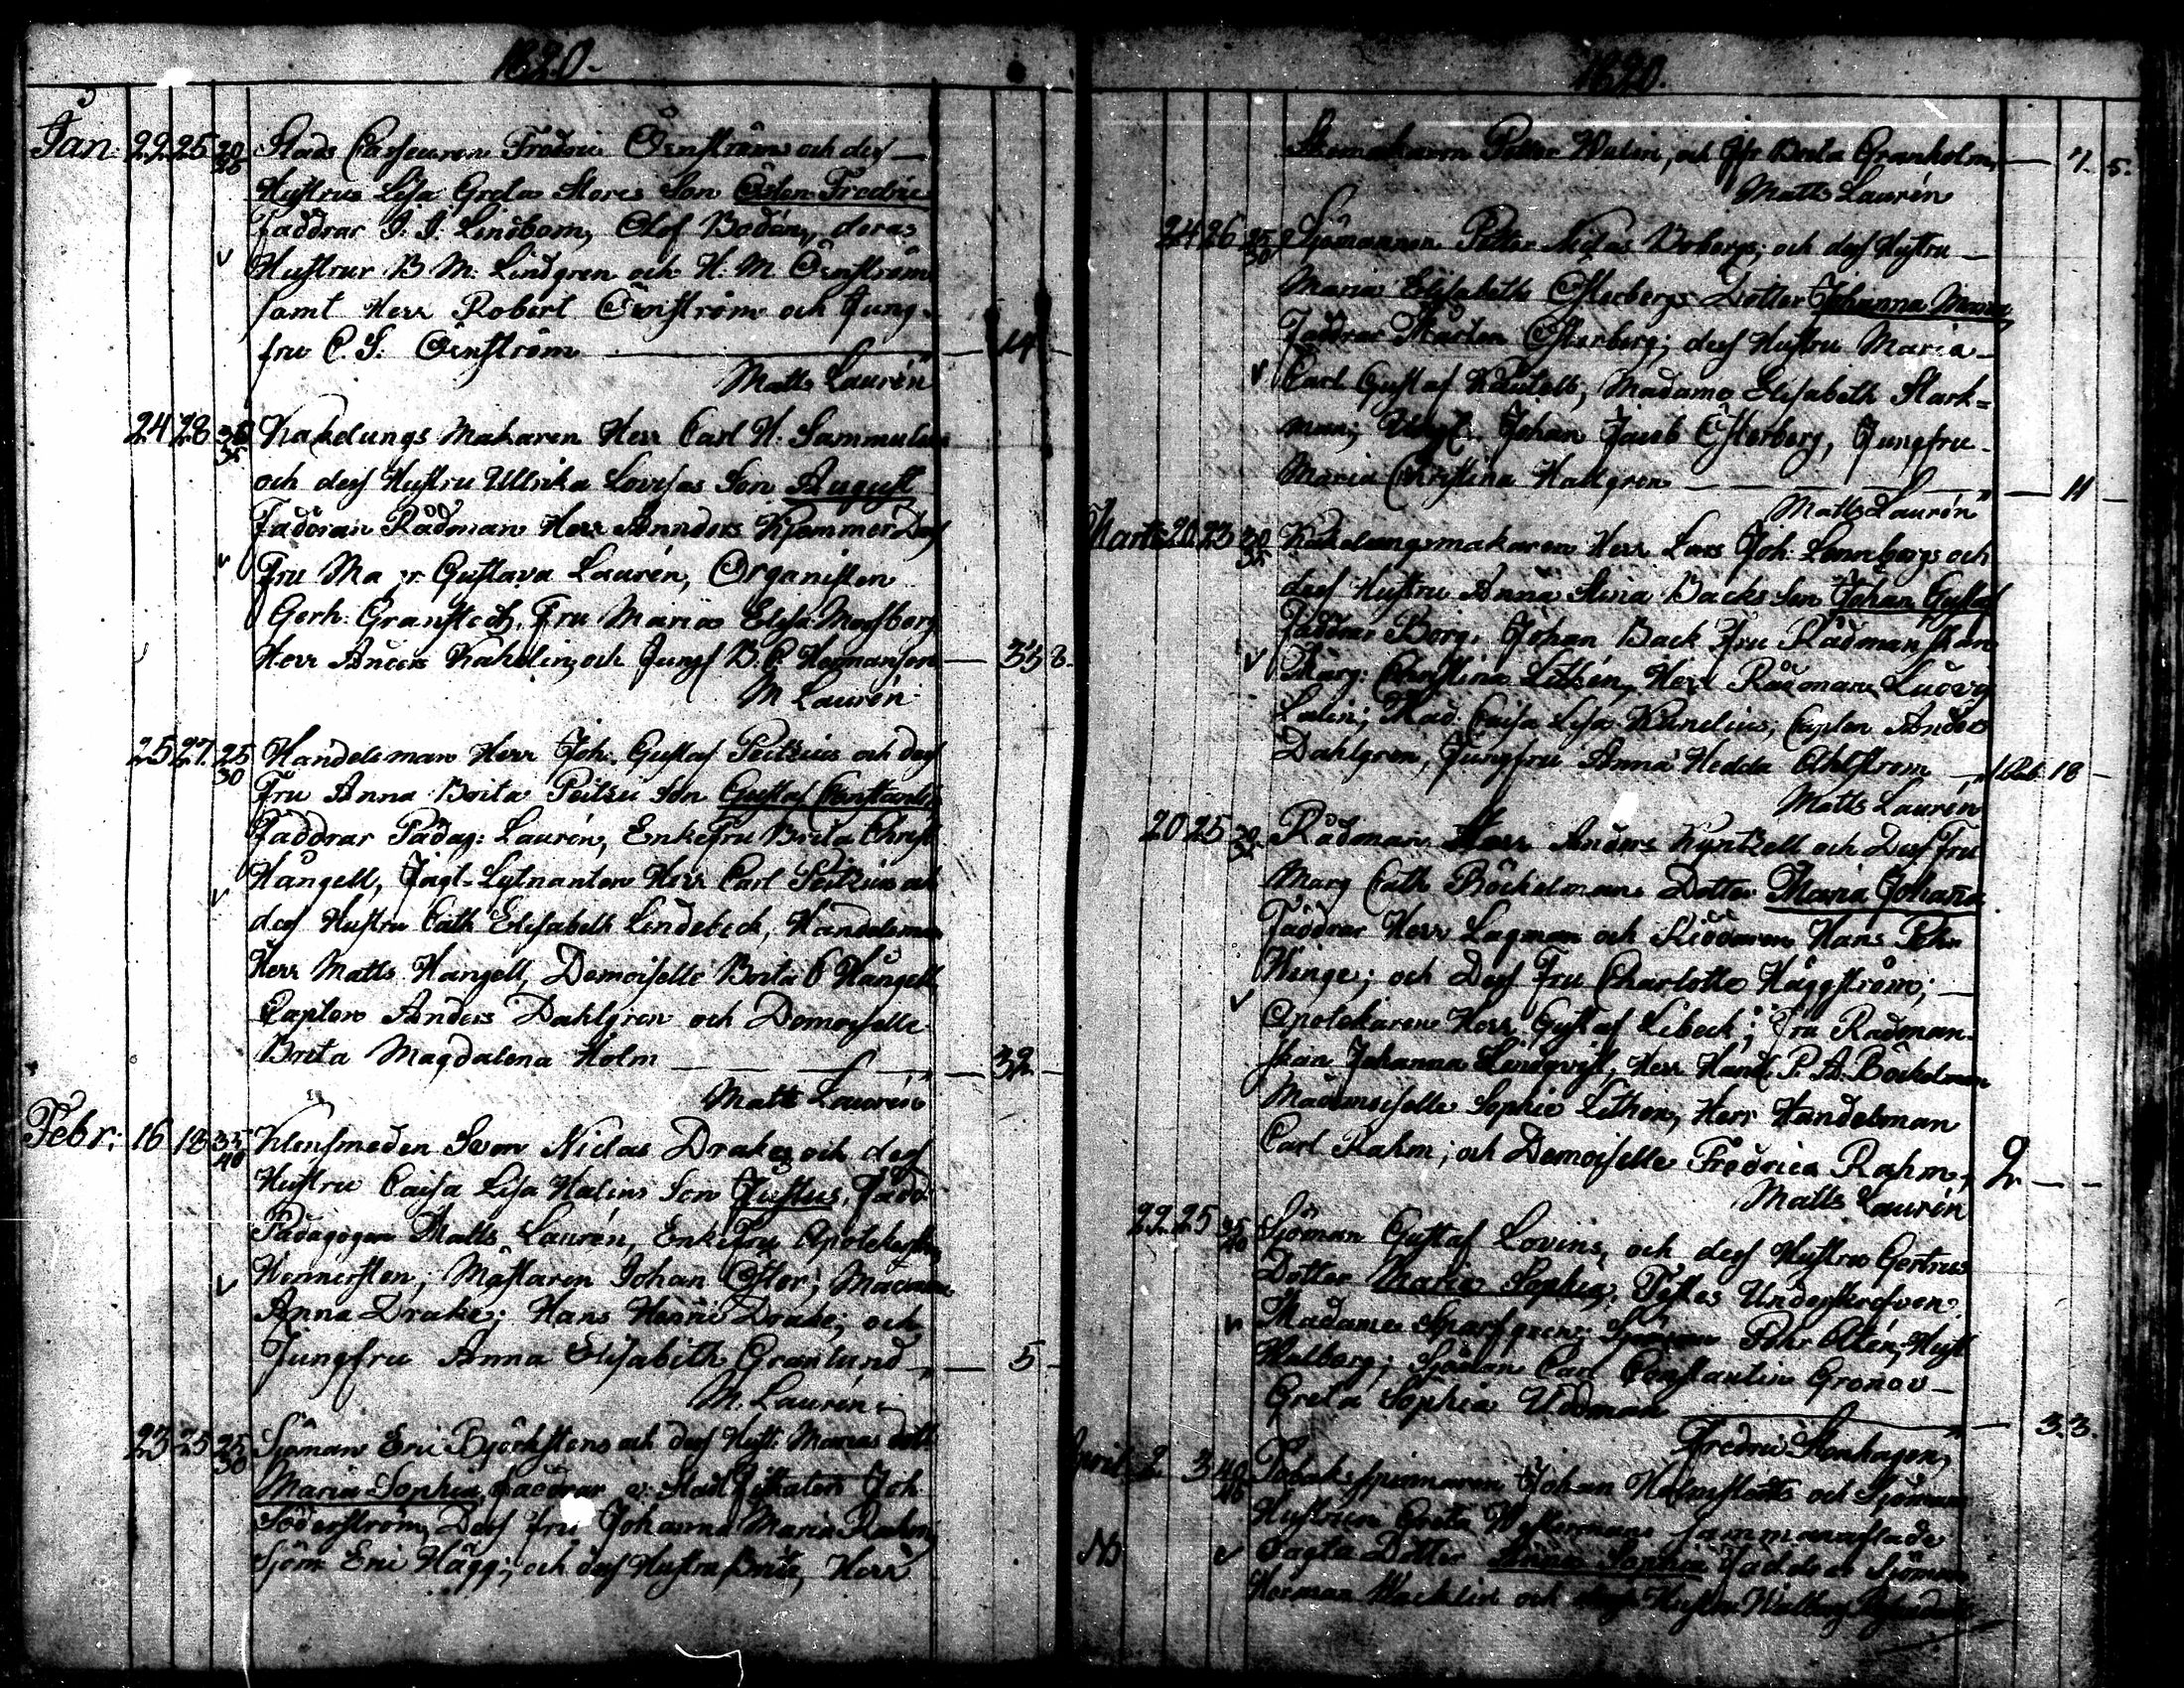 1820.
Jan. 22 25 20/25 Stads Casseuren Fredric Öenström och dess
Hustrus Lisa Greta Stores Son Östen Fredric
Faddrar J. J. Lindbom, Olof Bodén, deras
Hustrur B M. Lindgren och H. M. Öenström
samt Herr Robert Öenström och Jung-
fru C. S. Öenström — 14 —
Matts Laurén
24 28 30/35 Kakelungs Makaren Herr Carl H. Sammulins
och dess Hustru Ullrika Lovisas Son August
Faddran Rådman Herr Annders
Fru Gustava Laurén, Organisten
Gerh: Granstedt, Fru Maria Elisa Mosberg
Herr Anders Kakelin, och Jungf B. C. Hermanson — 33 8.
M Laurén
25 27. 25/30 Handelsman Herr Joh. Gustaf Peitzius och dess
Fru Anna Brita Peitzii Son Gustaf Constantin
Faddrar Pädag: Laurén, Enkefru Brita Christ
Hångell, Jägt-Lytnanten Herr Carl Peitzius och
dess Hustru Cath Elisabeth Lindebeck, Handelsman
Herr Matts Hangell, Demoiselle Brita C Hångell,
Capten Anders Dahlgren och Demoiselle
Brita Magdalena Holm — 32 —
Matts Laurén
Febr: 16 18 35/40 Klensmeden Sven Niclas Drakes och dess
Hustru Caisa Lisa Halins Son Justus, Fadd:
Pädagogen Matts Laurén, Enkefru
Mästaren Johan Öster; Madame
Anna Drake; Hans Henric Drake; och
Jungfru Anna Elisabeth Granlund — 5 —
M. Laurén
23 25 25/30 Sjöman Eric Björkstens och dess Hust Marias dott
Maria Sophia, faddrar v. Stads Joh
Söderström, Dess fru Johanna Maria
Sjöm Eric Hägg; och dess Hustru Brita, Herr
1820.
Skomakaren Petter Walin, och Jfr Brita Granholm, — 7. 5.
Matts Laurén
24 26 25/30 Sjömannen Petter Niclas Brobergs, och dess Hustru
Maria Elisabeth Österbergs Dotter Johanna Maria,
Faddrar Mårten Österberg; dess Hustru Maria
Carl Gustaf Madame Elisabeth Stark=
man; Johan Jacob Österberg, Jungfru
Maria Christina Hallgren — 11 —
Matts Laurén
Martii 20 23 30/35 Kakelungsmakaren Herr Lars Joh: Lennbergs och
dess Hustru Anna Stina Backs Son Johan Gustaf
Faddrar Borg. Johan Back Fru Rådmanskan
Marg: Christina Littzén, Herr Rådman Ludvig
Lalin; Mad. Caisa Lisa Capten Anders
Dahlgren, Jungfru Anna Hedda Ahlström — 1 Rub. 18 —
Matts Laurén
20 25 30/35 Rådman Herr Anders Kyntzell och Dess Fru
Marg Cath Böckelmans Dotter Maria Johana
Faddrar Herr Lagman och Riddaren Hans Pehr
Winge; och Dess Fru Charlotte Häggström;
Apotekaren Herr Gustaf Libeck; Fru Rådman-
skan Johanna Lindqvist, Herr Handl. P. A. Böckelman
Mademoiselle Sophie Lithen, Herr Handelsman
Carl Rahm; och Demoiselle Fredrica Rahm, 2 — —
Matts Laurén
22 25 35/40 Sjöman Gustaf Lovins, och dess Hustru Gertrus
Dotter Maria Sophia, Testes Underskrefven
Madame Pehr Oltén, Hust
Walborg; Sjöman Carl Constantin Gronov
Greta Sophia Uddman — 3. 3.
Fredric Stenhagen
April 2 3 40/45 Tobaksspinnaren Johan Holmstedts och Sjöman
Hustrun Greta Westermans sammanaflade
Nb oägta Dotter Anna Sophia Faddrar Sjöman
Herman Wacklin och dess Hustru Walborg